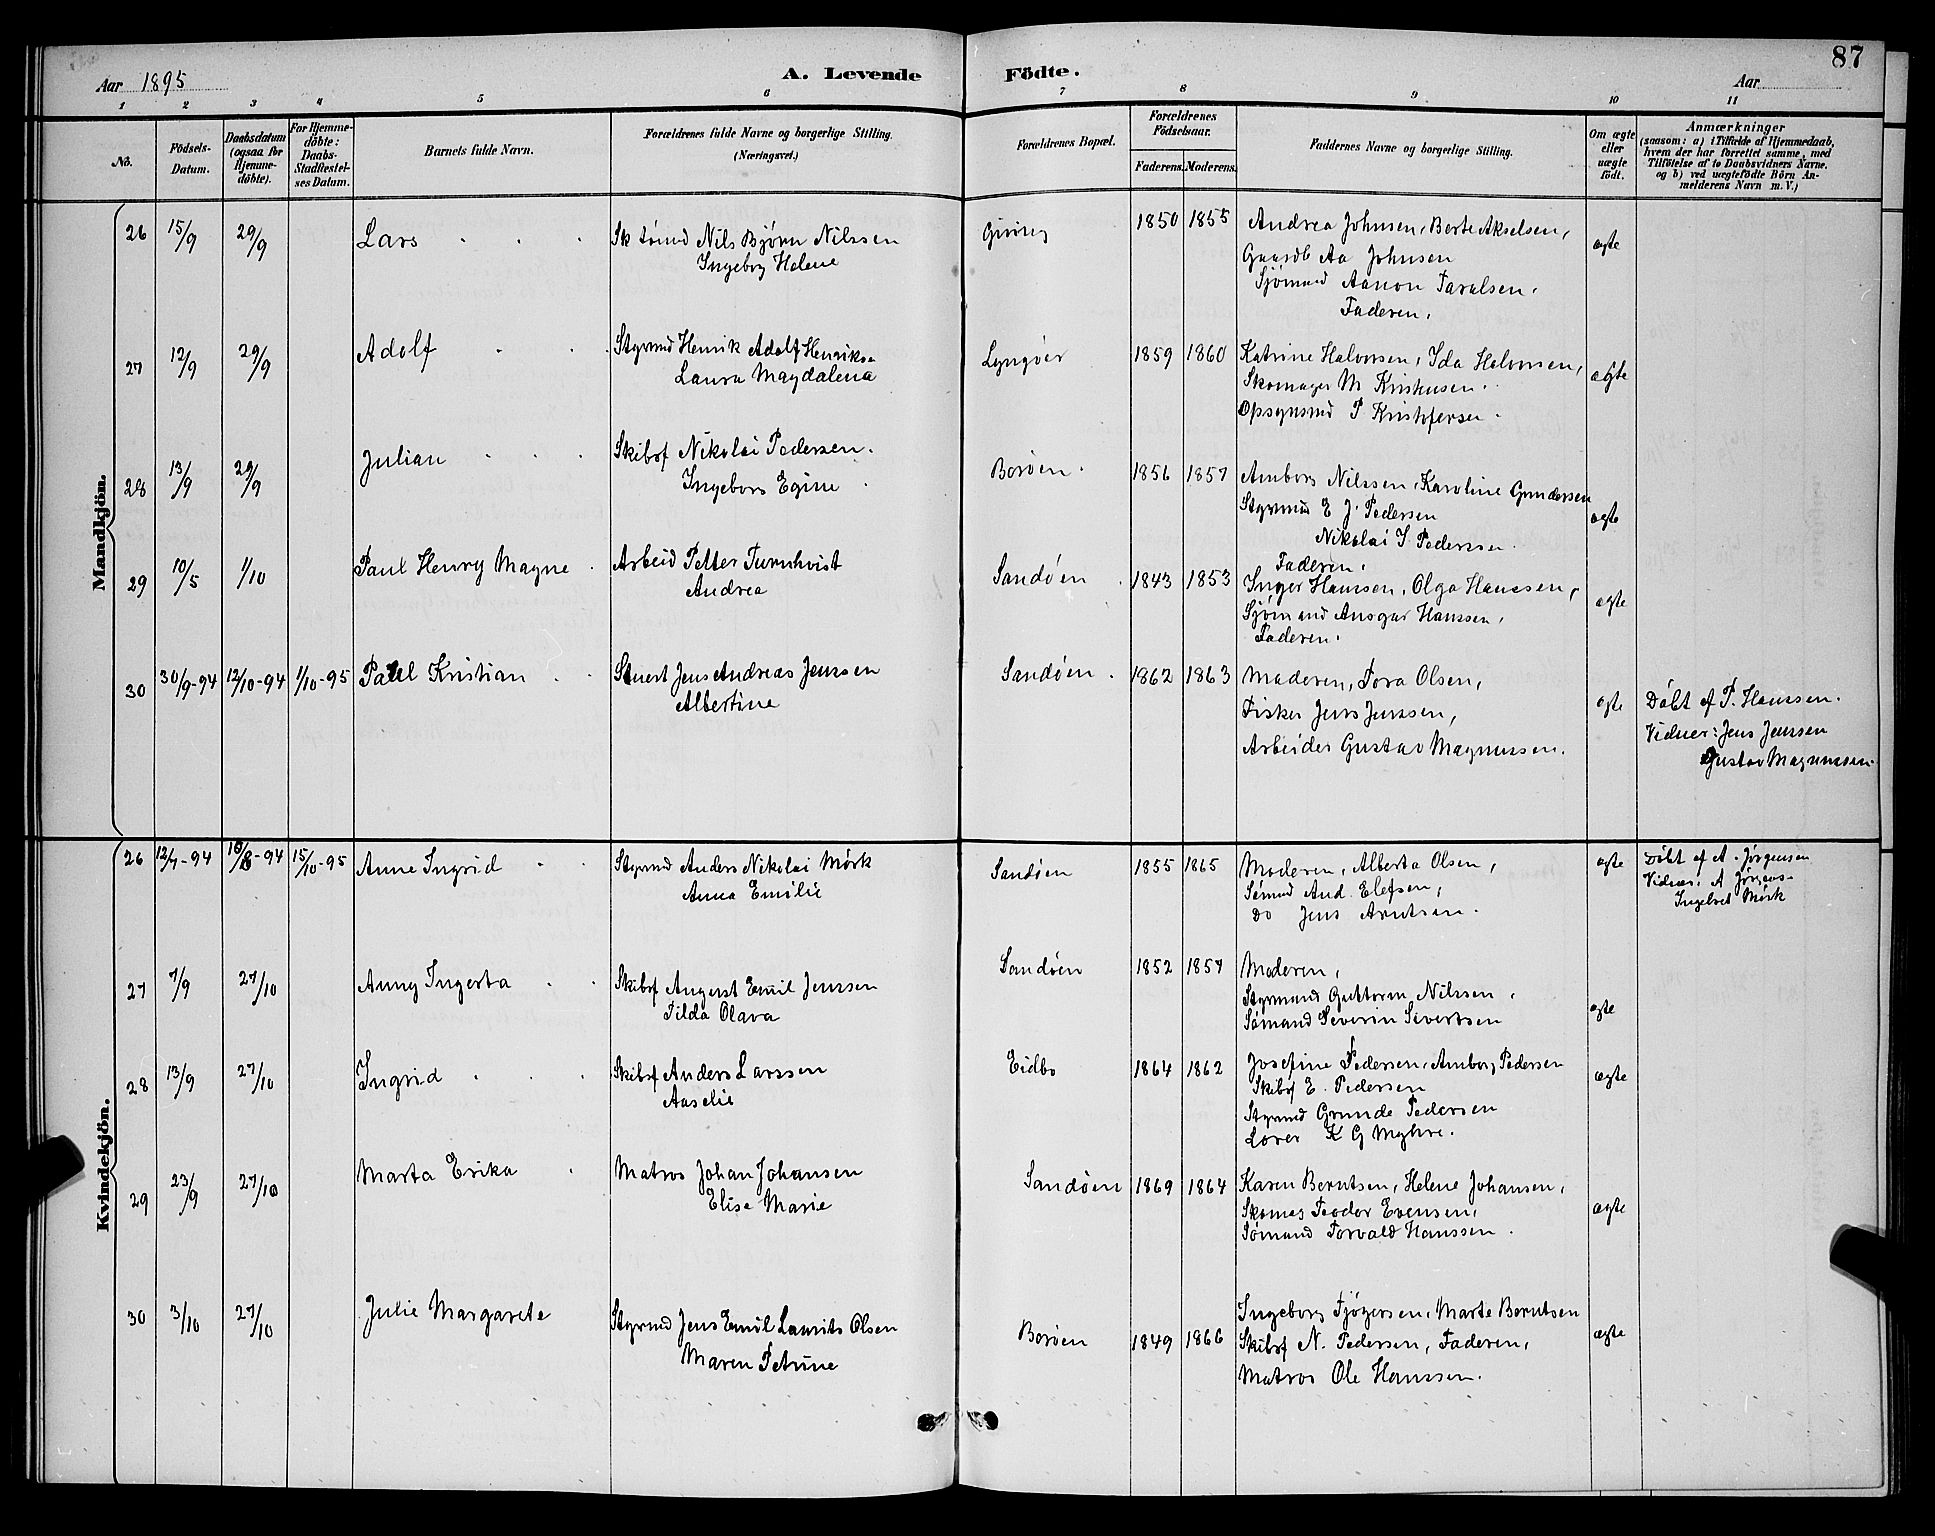 87
Aar 1895
A. Levende Födte.
Aar
1 2 3 4 5 6 7 8 9 10 11
No.
Födsels-Datum.
Daabsdatum (ogsaa for Hjemme-döbte).
For Hjemme-döbte: Daabs-Stadfæstel-ses Datum.
Barnets fulde Navn.
Forældrenes fulde Navne og borgerlige Stilling. (Næringsvei.)
Forældrenes Bopæl.
Forældrenes Födselsaar.
Faderens. Moderens.
Faddernes Navne og borgerlige Stilling.
Om ægte eller uægte födt.
Anmærkninger
(saasom: a) i Tilfælde af Hjemmedaab, hvem der har forrettet samme, med Tilföielse af to Daabsvidners Navne, og b) ved uægtefödte Börn An-melderens Navn m. V.)
Mandkjön.
26 15/9 29/9 Lars Nils Bjørn Nilssen 1850 1855 Andrea Johnsen, Berte Akselsen, ægte
Ingeborg Helene
Gaardb Aa Johnsen
Sjømand Aanon Tavalsen.
Faderen.
27 12/9 29/9 Adolf Styrmd Henrik Adolf Henriks. Lyngøer 1859 1860 Katrine Halvorsen, Ida Halvorsen, ægte
Laura Magdalena
Skomager M Kristensen.
Opsynsmd P Kristofersen.
28 13/9 29/9 Julian Skibsf Nikolai Pedersen. Borøen. 1856 1857 Amborg Nilssen, Karoline Gundersen ægte
Ingeborg Egine
Styrmd E J. Pedersen
Nikolai J. Pedersen.
Faderen.
29 10/5 1/10 Paul Henry Magne Arbeid Petter Turnhvist Sandøen. 1843 1853 Inger Hanssen, Olga Hanssen, ægte
Andrea
Sjømand Ansgar Hanssen,
Faderen.
30 30/9-94 12/10-94 1/10-95 Paul Kristian Jens Andreas Jenssen Sandøen. 1862 1863 Moderen, Tora Olsen, ægte
Albertine
Fisker Jens Jenssen,
Arbeider Gustav Magnussen.
Döbt af P. Hanssen.
Vidner: Jens Jenssen
Gustav Magnussen
Kvindekjön.
26 12/7-94 10/8-94 15/10-95 Anne Ingrid Styrmd Anders Nikolai Mørk Sandøen 1855 1865 Moderen, Alberta Olsen, ægte
Anna Emilie
Sømnd And. Elefsen,
Do Jens Arntsen.
Döbt af A. Jørgensen
Vidner: A Jörgens-
Mørk
27 7/9 27/10 Anny Ingerta Skibsf August Emil Jenssen Sandøen 1852 1857 Moderen, ægte
Tilda Olava
Styrmand Guttorm Nilssen,
Sømand Severin Sivertsen
28 13/9 27/10 Ingrid Skibsf Anders Larssen Eidbo 1864 1862 Josefine Pedersen, Amborg Pedersen ægte
Aaselie
Skibsf E. Pedersen
Styrmd Grunde Pedersen
Lærer K G Myhre.
29 23/9 27/10 Marta Erika Matros Johan Johansen Sandøen 1869 1864 Karen Berntsen, Helene Johansen, ægte
Elise Marie
Skomag Teodor Evensen,
Sømand Torvald Hanssen.
30 3/10 27/10 Julie Margarete Styrmd Jens Emil Laurits Olsen Borøen 1849 1866 Ingeborg Tjøgersen, Marte Berntsen ægte
Maren Petrine
Skibsf N. Pedersen, Faderen,
Matros Ole Hanssen.